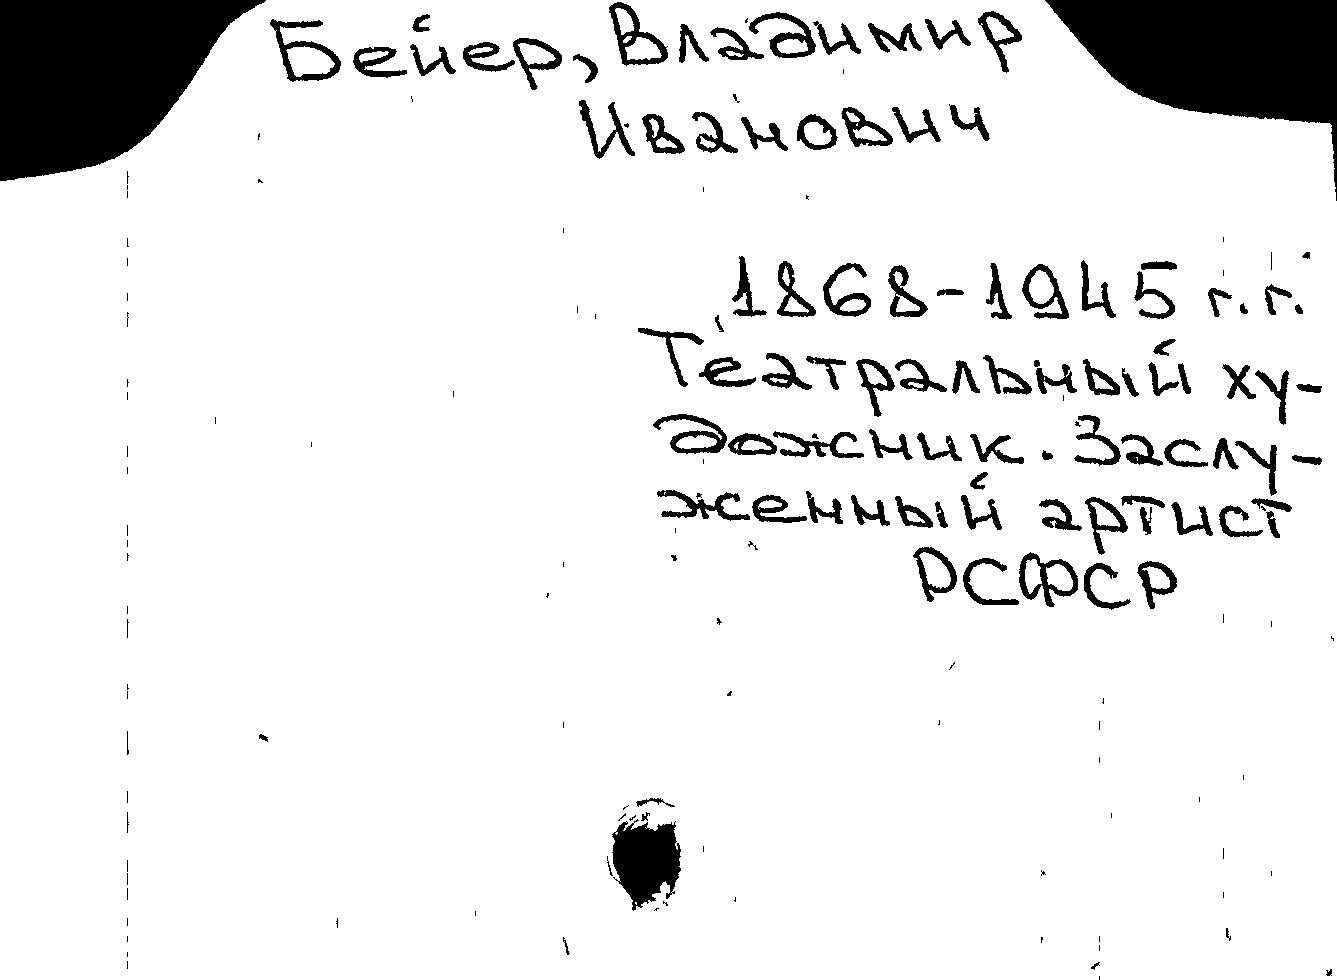 Бейер, Владимир
Иванович
1868-1945 г.г.
Театральный ху-
дожник. Заслу-
женный артист
РСФСР